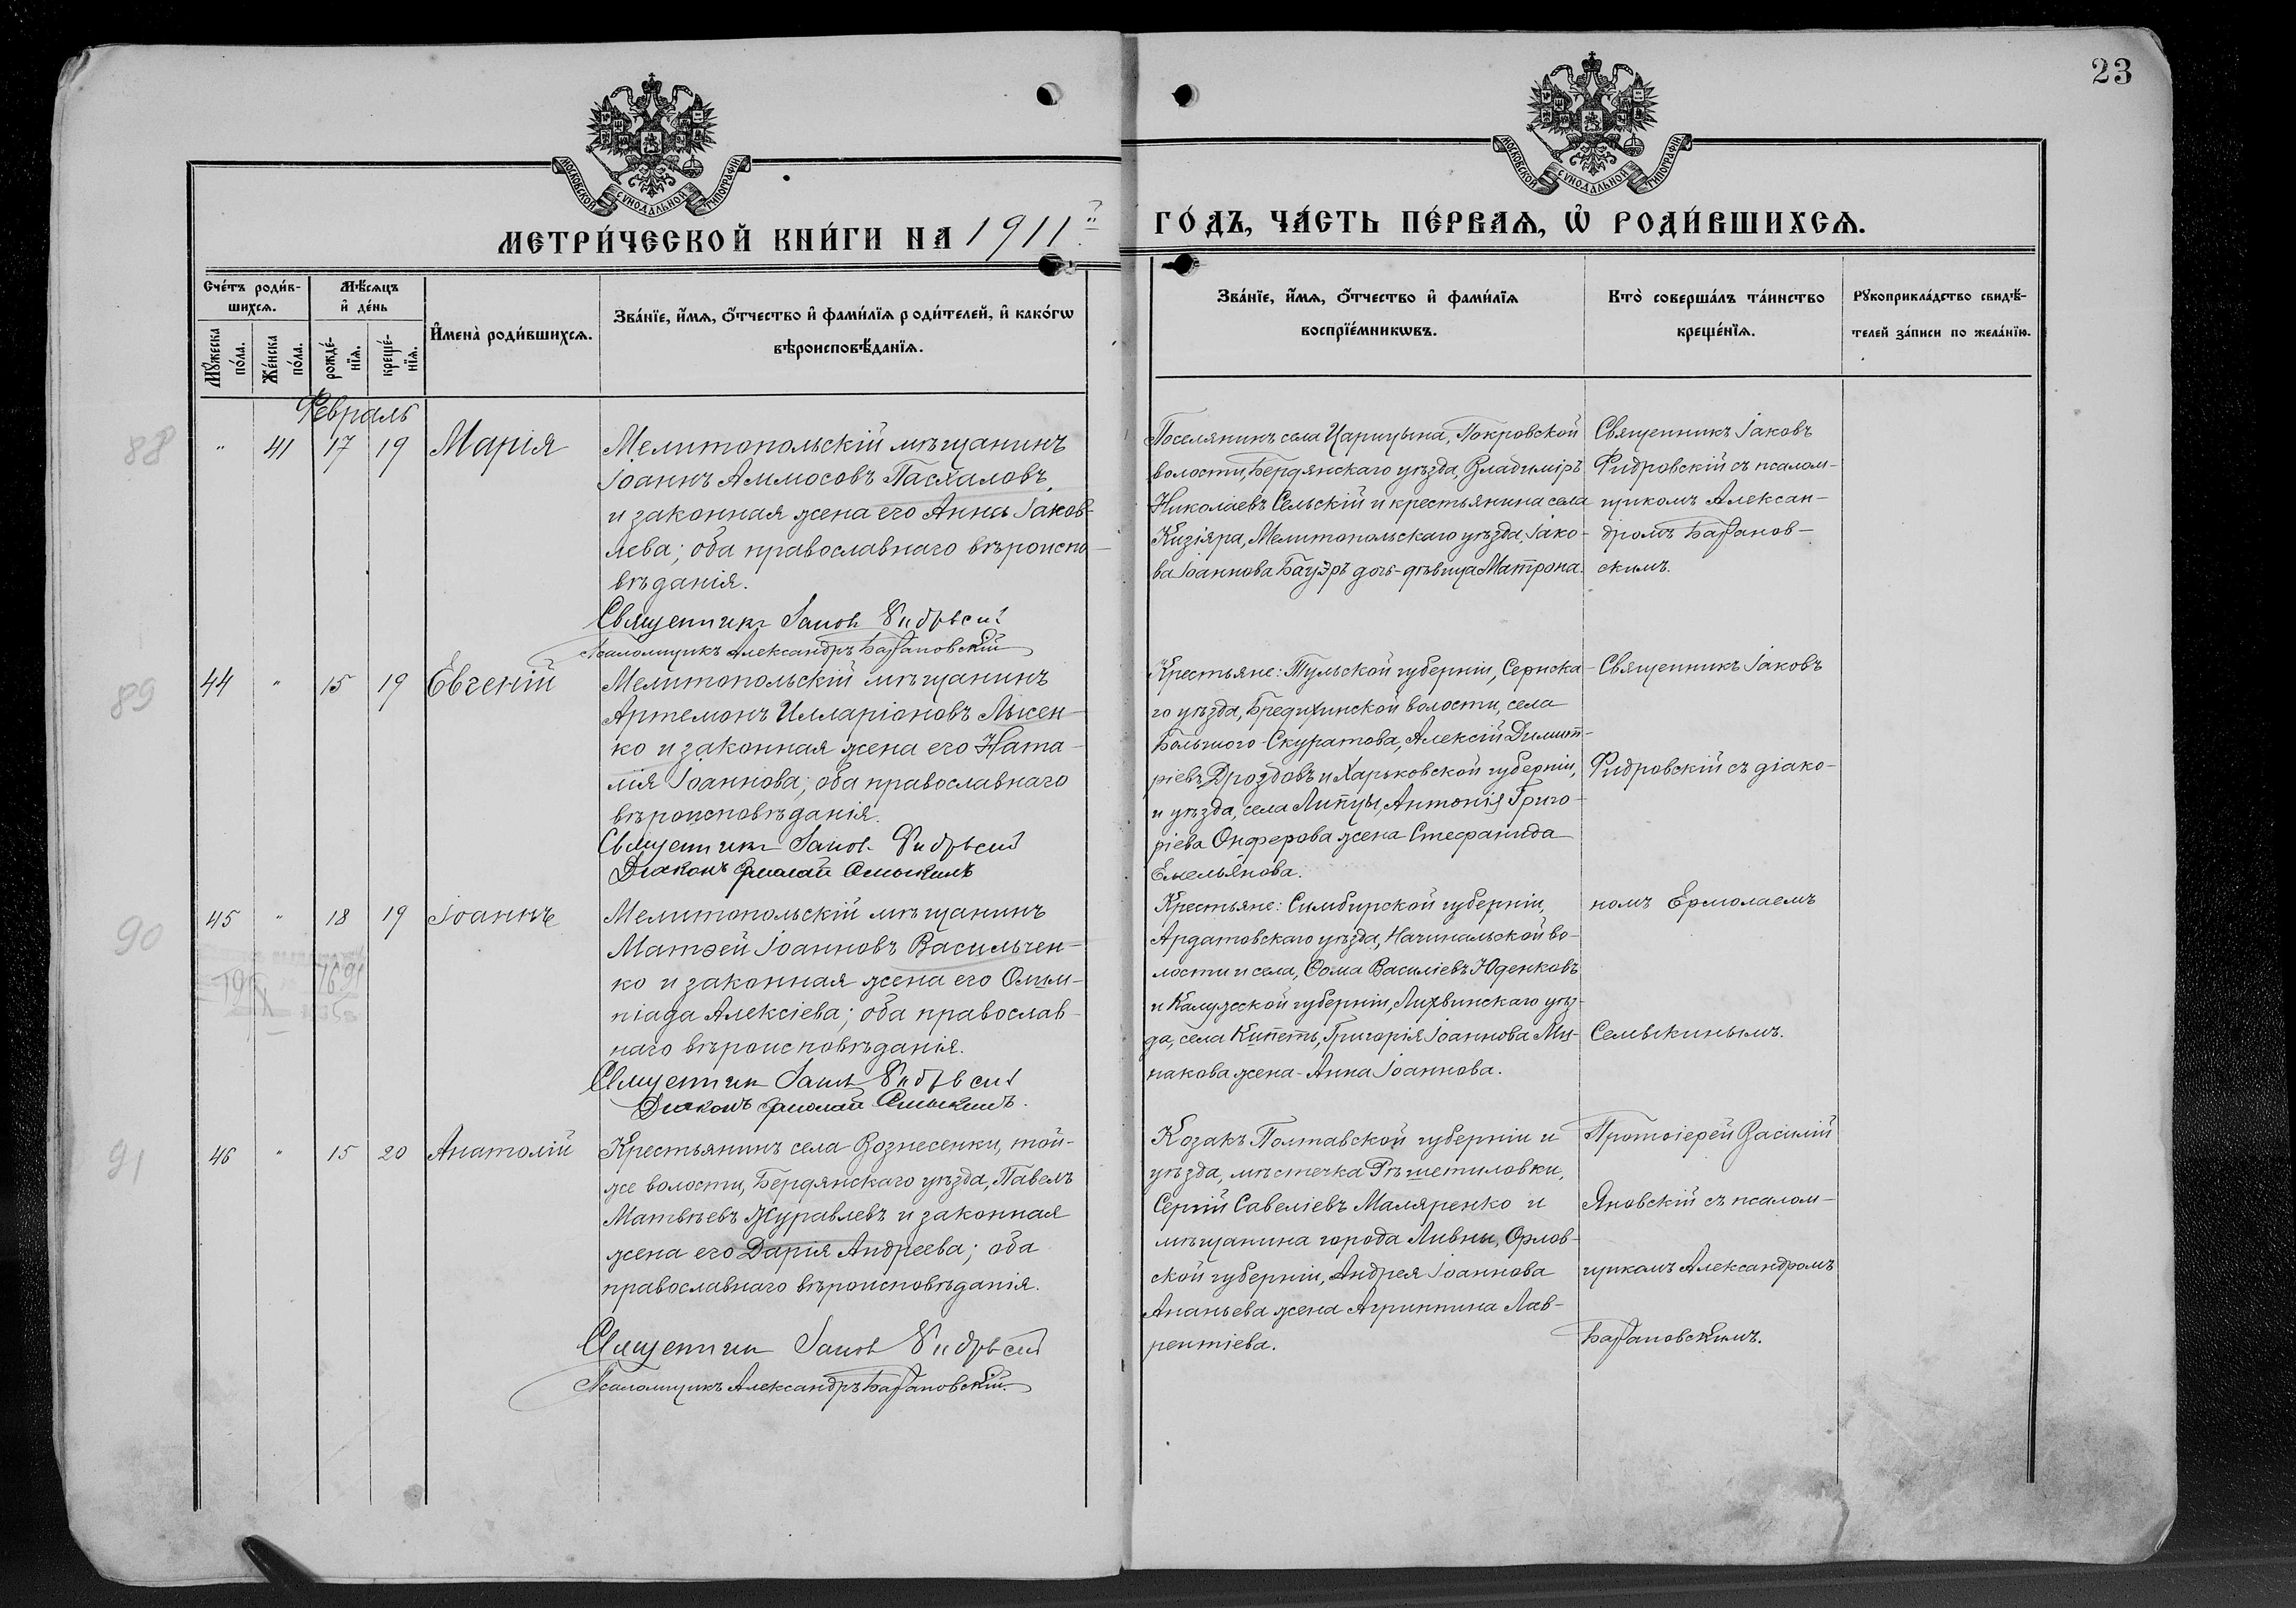 23
МОСКОВСКОЙ СѴНОДАЛЬНОЙ ТИПОГРАФІИ
МОСКОВСКОЙ СѴНОДАЛЬНОЙ ТИПОГРАФІИ
МЕТРИ́ЧЕСКОЙ КНИ́ГИ НА 1911 ГО́ДЪ, ЧА́СТЬ ПЕ́РВАѦ, Ѡ҆ РОДИ́ВШИХСѦ.
Сче́тъ роди́в-
шихсѧ.
Мꙋ́жеска по́ла.
Же́нска по́ла.
Мѣ́сѧцъ и҆ де́нь
рожде́-нїѧ.
креще́-нїѧ.
И҆мена̀ роди́вшихсѧ.
Зва́нїе, и҆́мѧ, ѻ҆́тчество и҆ фами́лїѧ роди́телей, и҆ како́гѡ
вѣроисповѣ́данїѧ.
Зва́нїе, и҆́мѧ, ѻ҆́тчество и҆ фами́лїѧ
воспрїе́мникѡвъ.
Кто̀ соверша́лъ та́инство
креще́нїѧ.
Рꙋкоприкла́дство свидѣ́-
телей за́писи по жела́нїю.
Февраль
88
" 41 17 19 Марія
Мелитопольскій мѣщанинъ
Іоаннъ Аммосовъ Пасхаловъ,
и законная жена его Анна Іаков-
лева; оба православнаго вѣроиспо-
вѣданія.
Священникъ Іаковъ Фидровскій
Псаломщикъ Александръ Баѳановскій
Поселянинъ села Царицына, Покровской
волости, Бердянскаго уѣзда, Владиміръ
Николаевъ Сельскій и крестьянина села
Кизіяра, Мелитопольскаго уѣзда, Іако-
ва Іоаннова Бауэръ дочь-дѣвица Матрона.
Священникъ Іаковъ
Фидровскій съ псалом-
щикомъ Алексан-
дромъ Баѳанов-
скимъ.
89
44 " 15 19 Евгеній
Мелитопольскій мѣщанинъ
Артемонъ Илларіоновъ Лысен-
ко и законная жена его Ната-
лія Іоаннова; оба православнаго
вѣроисповѣданія.
Священникъ Іаковъ Фидровскій
Діаконъ Ермолай Семыкинъ
Крестьяне: Тульской губерніи, Сернска-
го уѣзда, Бредихинской волости, села
Большого-Скуратова, Алексій Димит-
ріевъ Дроздовъ и Харьковской губерніи,
и уѣзда, села Липцы, Антонія Григо-
ріева Онферова жена Стефанида
Емельянова.
Священникъ Іаковъ
Фидровскій съ діако-
90
45 " 18 19 Іоаннъ
Мелитопольскій мѣщанинъ
Матѳей Іоанновъ Васильчен-
ко и законная жена его Олим-
піада Алексіева; оба православ-
наго вѣроисповѣданія.
Священникъ Іаковъ Фидровскій
Діаконъ Ермолай Семыкинъ.
Крестьяне: Симбирской губерніи,
Ардатовскаго уѣзда, Качинальской во-
лости и села, Ѳома Василіевъ Юденковъ
и Калужской губерніи, Лихвинскаго уѣз-
да, села Кипеть, Григорія Іоаннова Ми-
накова жена-Анна Іоаннова.
номъ Ермолаемъ
Семыкинымъ.
91
46 " 15 20 Анатолій
Крестьянинъ села Вознесенки, той-
же волости, Бердянскаго уѣзда, Павелъ
Матвѣевъ Журавлевъ и законная
жена его Дарія Андреева; оба
православнаго вѣроисповѣданія.
Священникъ Іаковъ Фидровскій
Псаломщикъ Александръ Баѳановскій
Козакъ Полтавской губерніи и
уѣзда, мѣстечка Рѣшетиловки,
Сергій Савеліевъ Маляренко и
мѣщанина города Ливны, Орлов-
ской губерніи, Андрея Іоаннова
Ананьева жена Агриппина Лав-
рентіева.
Протоіерей Василій
Яновскій съ псалом-
щикомъ Александромъ
Баѳановскимъ.